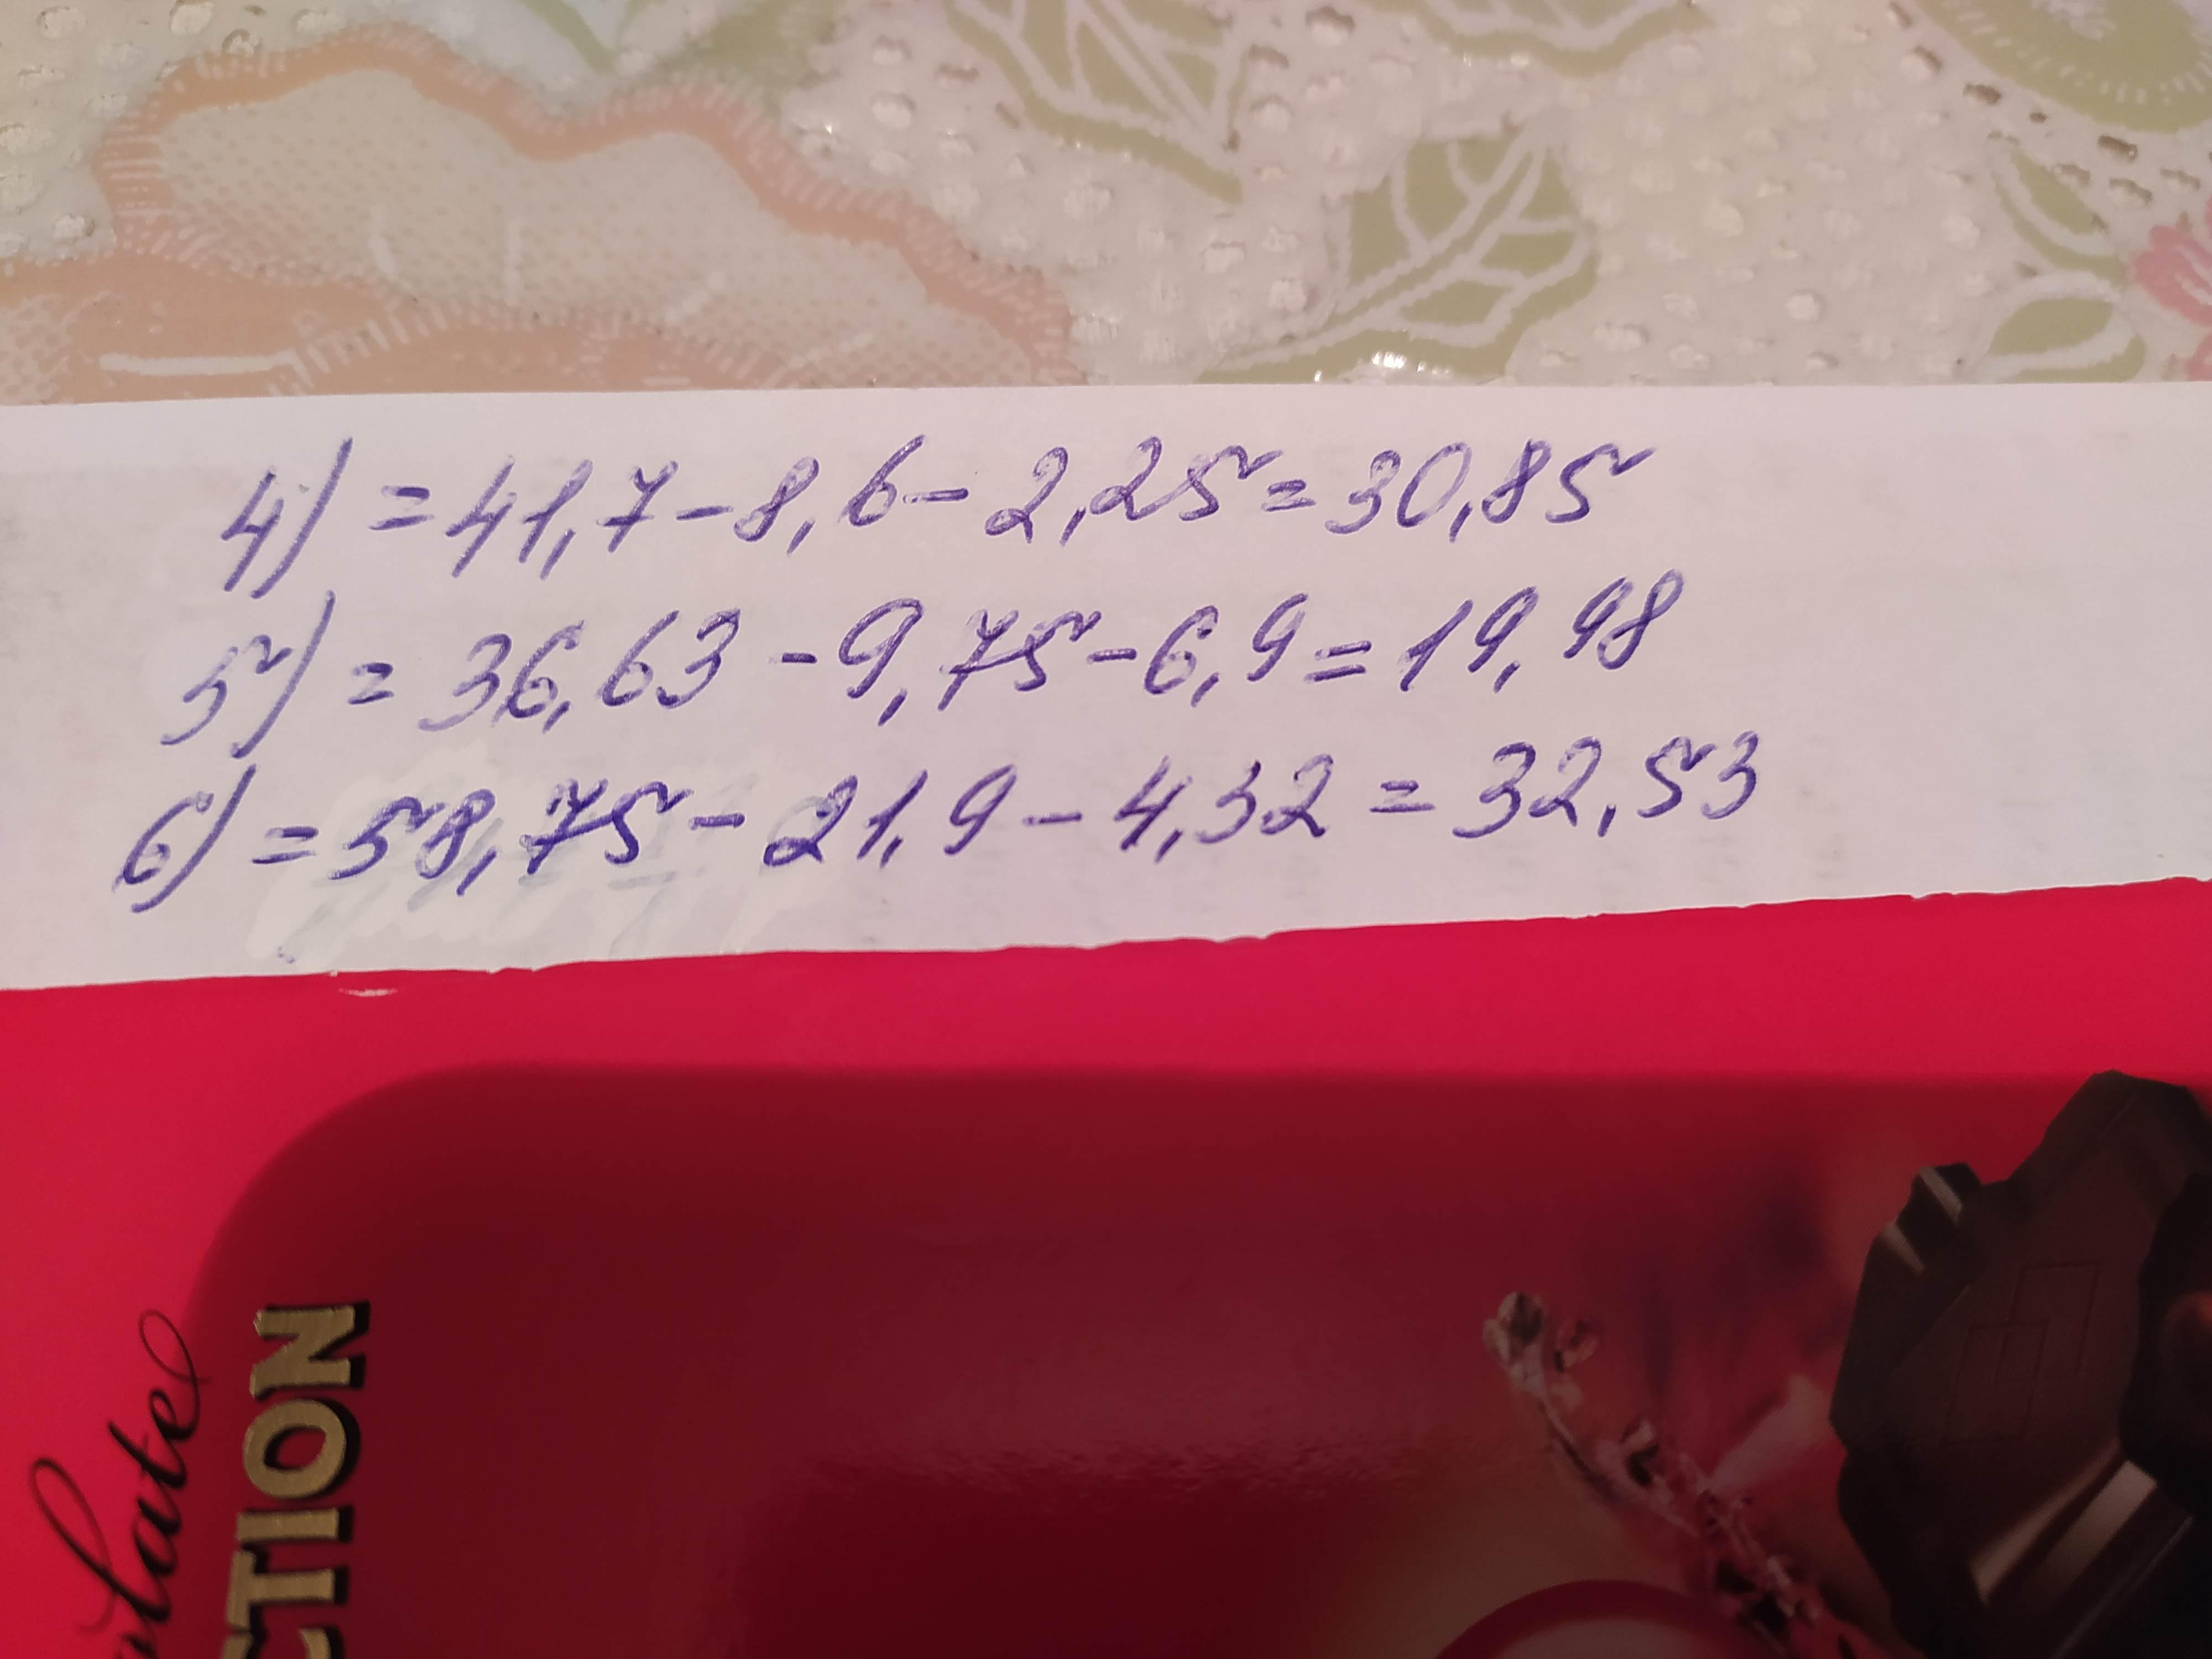 4) = 41,7 - 8,6 - 2,25 = 30,85
5) = 36,63 - 9,75 - 6,9 = 19,98
6) = 58,75 - 21,9 - 4,32 = 32,53
CTION